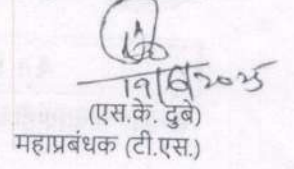 19/6/2025
(एस.के. दुबे)
महाप्रबंधक (टी.एस.)